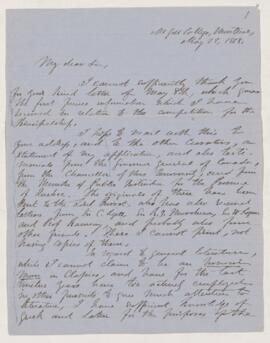 McGill College, Montreal,
May 19, 1868.
My dear Sir,
I cannot sufficiently thank you
for your kind letter of May 8th, which gives
the first precise information which I have
received in relation to the competition for the
Principalship.
I hope to mail with this to
your address, and to the other Curators, a
statement of my application, and also testi-
monials from the Governor General of Canada,
from the Chancellor of this University, and from
the Minister of Public Instruction in the Province
of Quebec. The originals of these have been
sent to the Lord Provost, who has also received
letters from Sir C. Lyell, Sir R. I. Murchison,
and Prof Ramsay, and probably also from
other friends. These I cannot send, not
having copies of them.
In regard to general literature,
while I cannot claim to be an Honour
Man in Classics, and have for the last
twelve years been too actively employed
in other pursuits to give much attention to
literature, I have sufficient knowledge of
Greek and Latin for the purposes of the